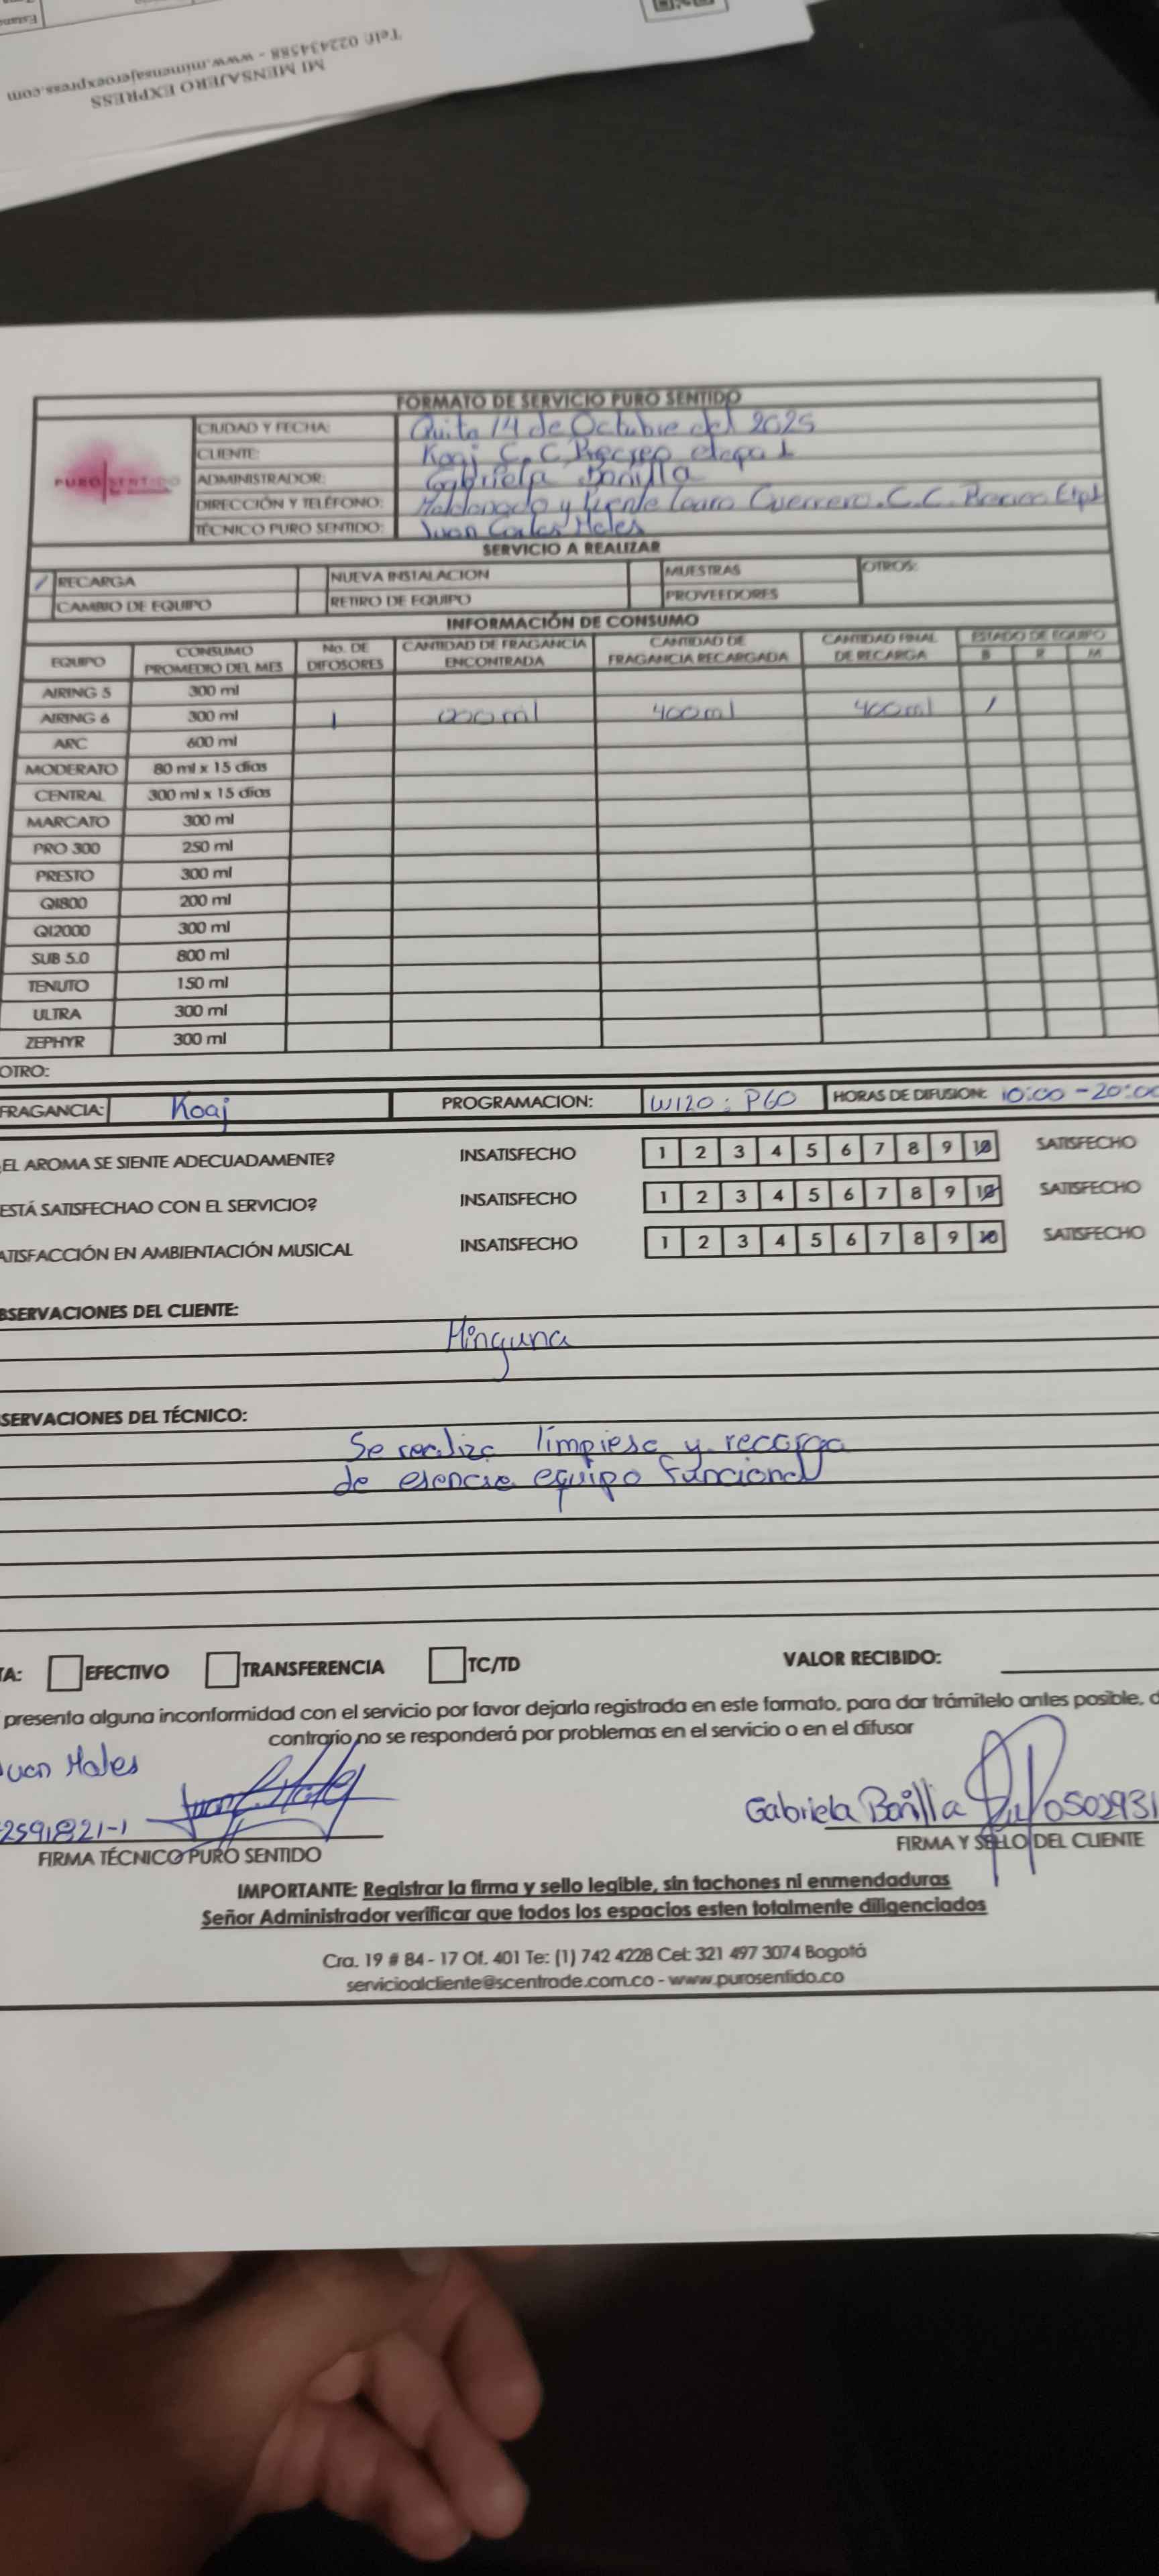 Estam
Telf: 022434588 - www.mimensajeroexpress.com
MI MENSAJERO EXPRESS
FORMATO DE SERVICIO PURO SENTIDO
PURO SENTIDO
CIUDAD Y FECHA: Quito 14 de Octubre del 2025
CLIENTE: Koaj C.C. Recreo etapa 1
ADMINISTRADOR: Gabriela Bonilla
DIRECCIÓN Y TELÉFONO: Maldonado y Puente Guerrero. C.C. Recreo
TÉCNICO PURO SENTIDO: Juan Carlos Males
SERVICIO A REALIZAR
/ RECARGA NUEVA INSTALACION MUESTRAS OTROS:
CAMBIO DE EQUIPO RETIRO DE EQUIPO PROVEEDORES
INFORMACIÓN DE CONSUMO
EQUIPO CONSUMO PROMEDIO DEL MES No. DE DIFOSORES CANTIDAD DE FRAGANCIA ENCONTRADA CANTIDAD DE FRAGANCIA RECARGADA CANTIDAD FINAL DE RECARGA ESTADO DE EQUIPO B R M
AIRING 5 300 ml
AIRING 6 300 ml 1 000ml 400ml 400ml /
ARC 600 ml
MODERATO 80 ml x 15 días
CENTRAL 300 ml x 15 días
MARCATO 300 ml
PRO 300 250 ml
PRESTO 300 ml
QI800 200 ml
QI2000 300 ml
SUB 5.0 800 ml
TENUTO 150 ml
ULTRA 300 ml
ZEPHYR 300 ml
OTRO:
FRAGANCIA: Koaj PROGRAMACION: W120 : P60 HORAS DE DIFUSION: 10:00 - 20:00
EL AROMA SE SIENTE ADECUADAMENTE? INSATISFECHO 1 2 3 4 5 6 7 8 9 10 SATISFECHO
ESTÁ SATISFECHAO CON EL SERVICIO? INSATISFECHO 1 2 3 4 5 6 7 8 9 10 SATISFECHO
ATISFACCIÓN EN AMBIENTACIÓN MUSICAL INSATISFECHO 1 2 3 4 5 6 7 8 9 10 SATISFECHO
BSERVACIONES DEL CLIENTE:
Ninguna
SERVACIONES DEL TÉCNICO:
Se realiza limpiesa y recarga
de esencia equipo funcional
TA: EFECTIVO TRANSFERENCIA TC/TD VALOR RECIBIDO:
presenta alguna inconformidad con el servicio por favor dejarla registrada en este formato, para dar trámitelo antes posible, d
contrario no se responderá por problemas en el servicio o en el difusor
Juan Males
2591821-1
FIRMA TÉCNICO PURO SENTIDO
Gabriela Bonilla 0502931
FIRMA Y SELLO DEL CLIENTE
IMPORTANTE: Registrar la firma y sello legible, sin tachones ni enmendaduras
Señor Administrador verificar que todos los espacios esten totalmente diligenciados
Cra. 19 # 84 - 17 Of. 401 Te: (1) 742 4228 Cel: 321 497 3074 Bogotá
servicioalcliente@scentrade.com.co - www.purosentido.co